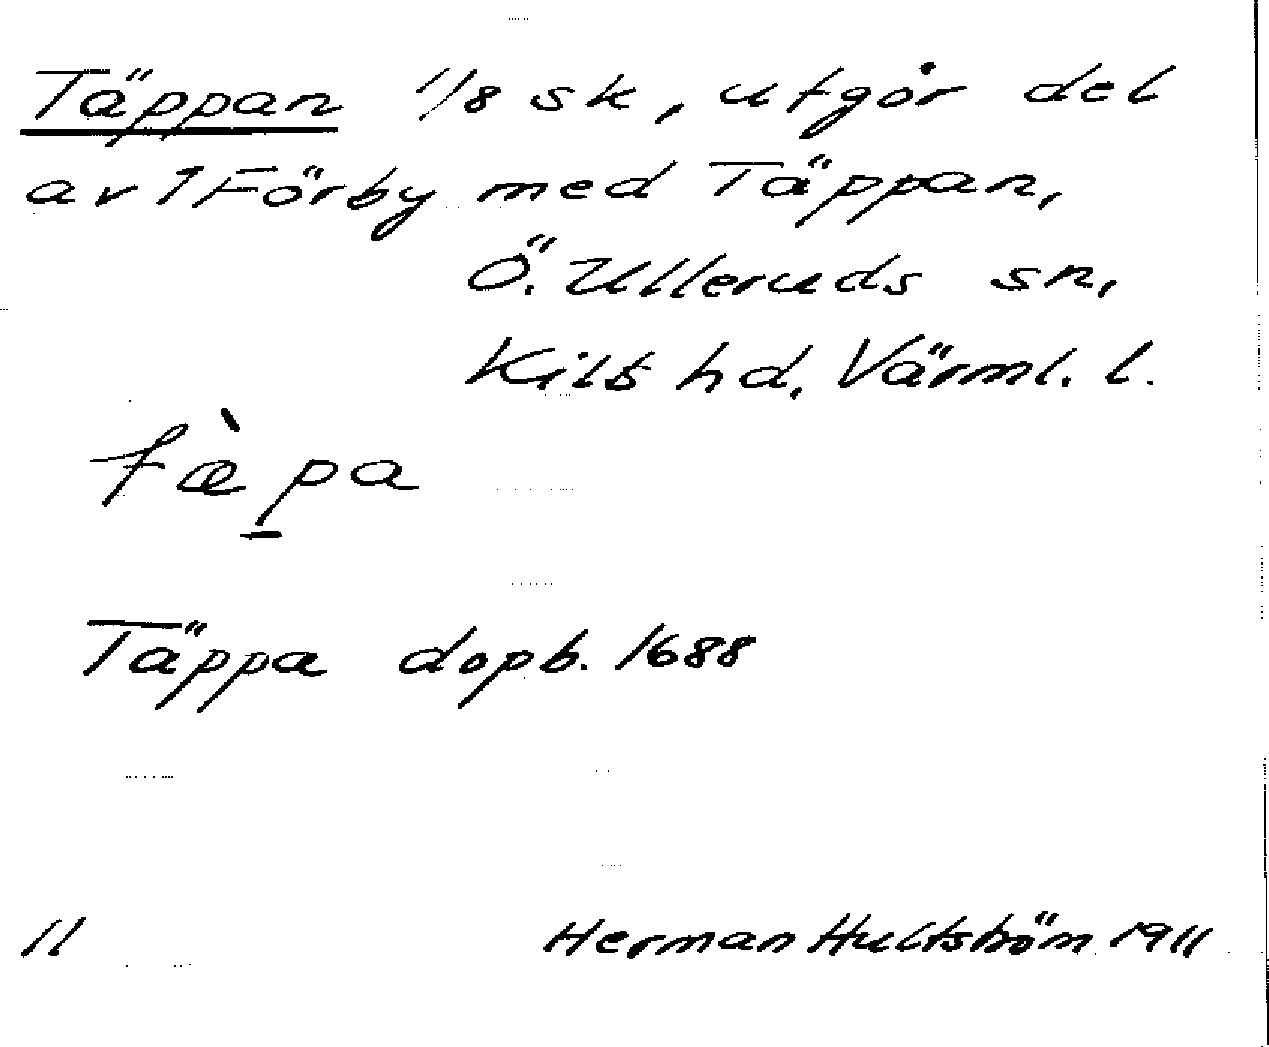 Täppan 1/8 sk, utgör del
av 1 Förby med Täppan,
Ö. Ulleruds sn,
Kils hd, Värml. l.
tæ̀pa
Täppa dopb. 1688
11 Herman Hultström 1911